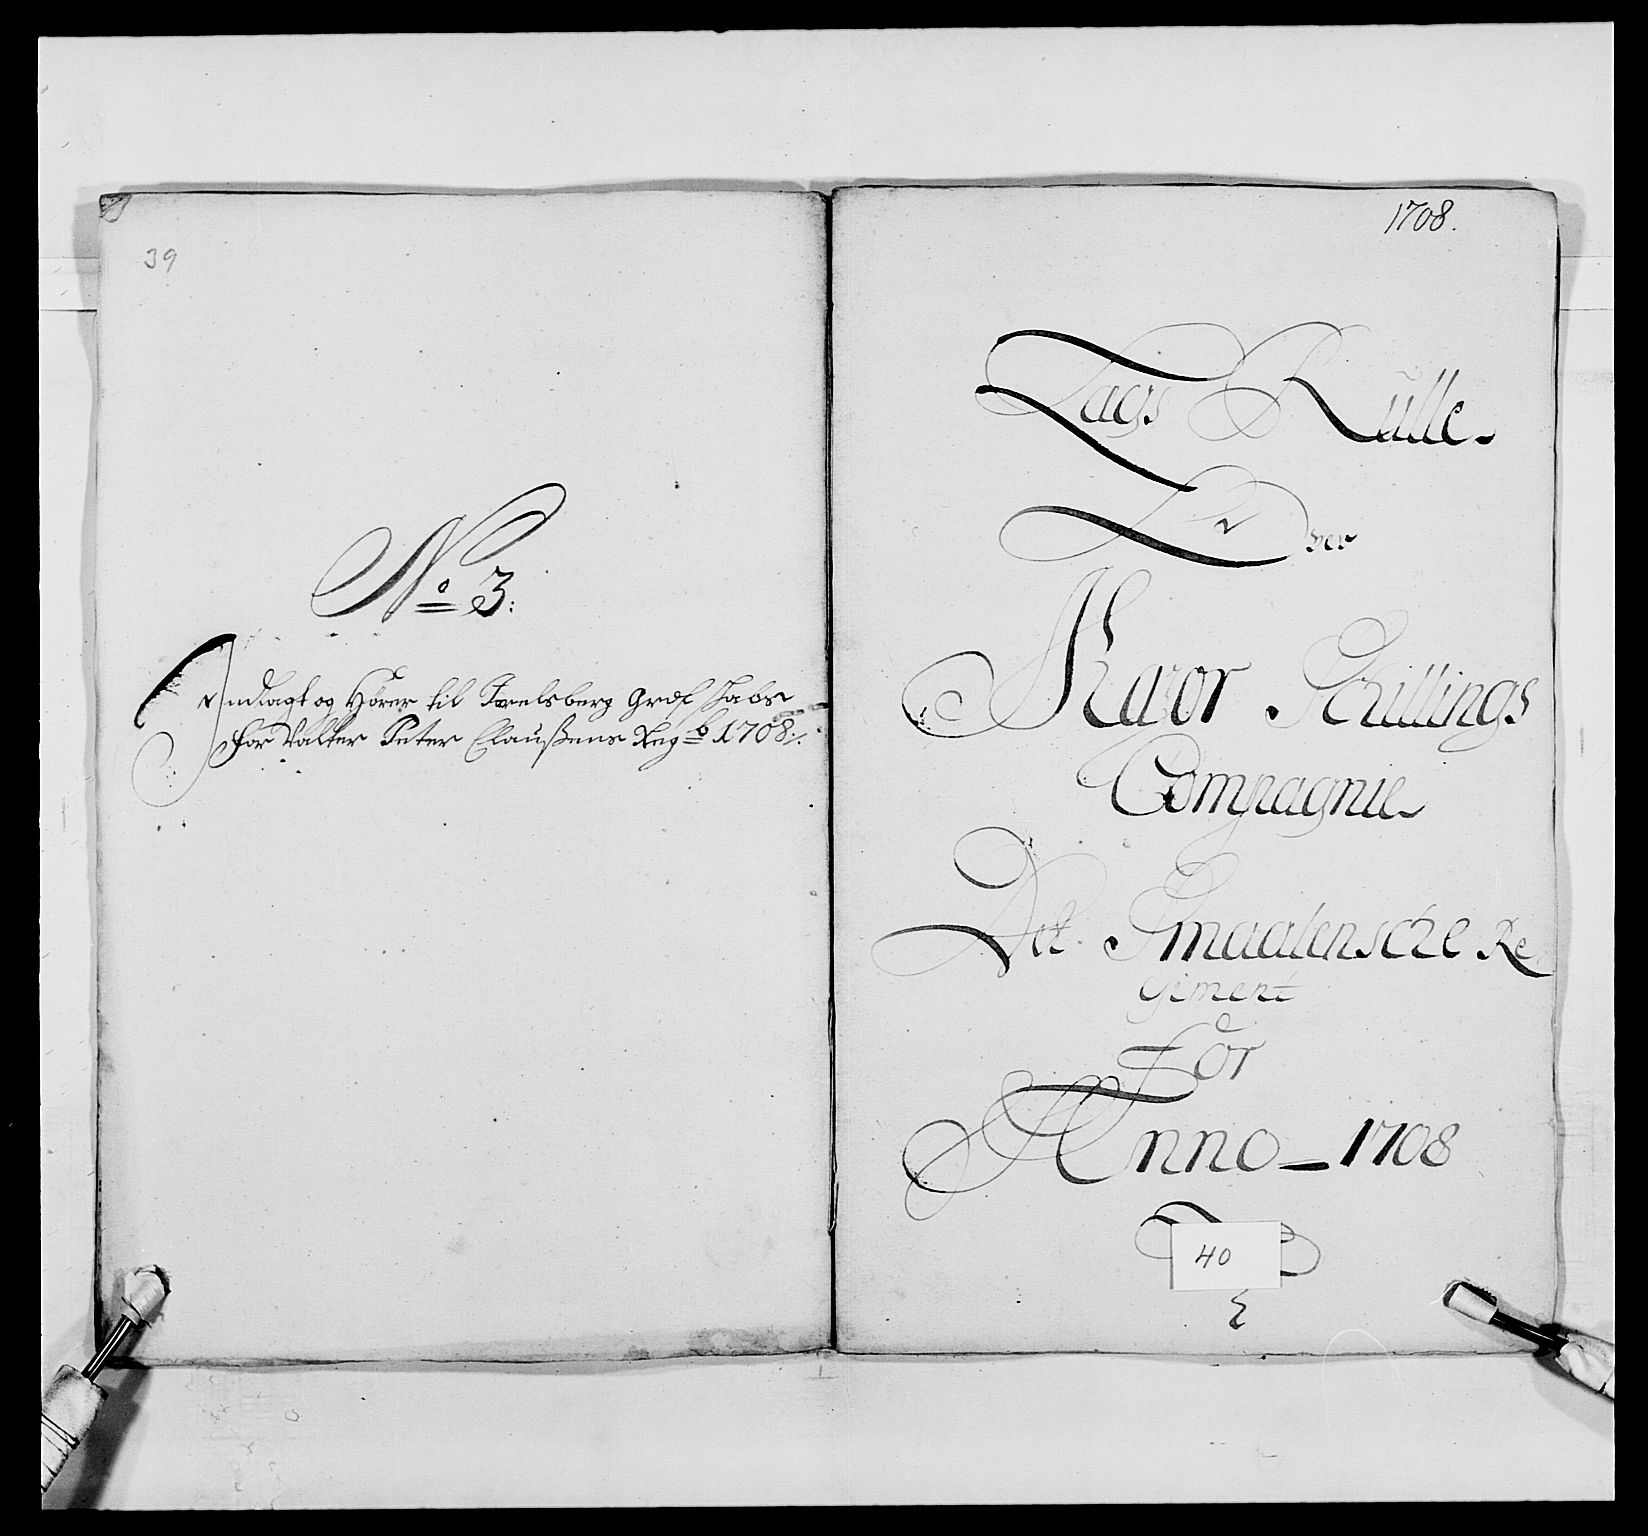 39
No 3:
Indlagt og Hörer til Jarlsberg Grefskabs
for Valter Peter Claußens Regb 1708:/:
1708.
Lags Rulle
Over
Major Schillings
Compagnie
Det Smaalensche Re
giment
For
Anno 1708
40